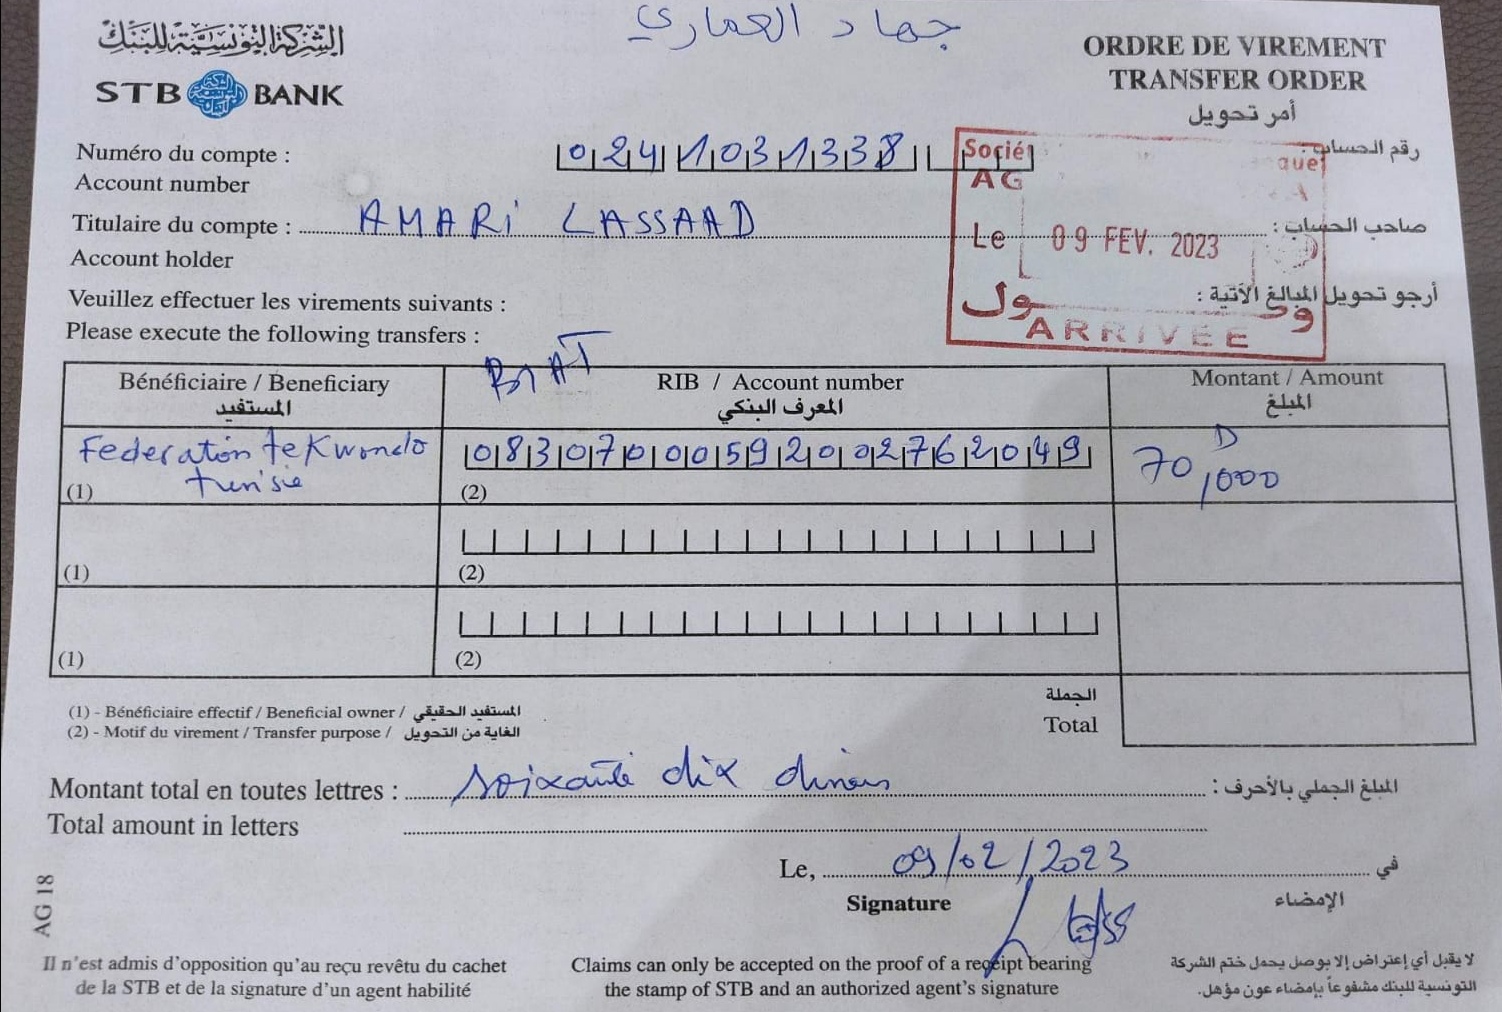 جهاد العماري
الشركة التونسية للبنك
STB BANK
ORDRE DE VIREMENT
TRANSFER ORDER
أمر تحويل
Numéro du compte : 024 1031338 رقم الحساب :
Account number
Titulaire du compte : AMARi LASSAAD صاحب الحساب :
Account holder
Socié que
AG
Le 09 FEV. 2023
ARRIVEE
Veuillez effectuer les virements suivants : أرجو تحويل المبالغ الآتية :
Please execute the following transfers :
BIAT
Bénéficiaire / Beneficiary RIB / Account number Montant / Amount
المستفيد المعرف البنكي المبلغ
Federation teKwondo 08307000592002762049 70D,000
tunisie
(1) (2)
(1) (2)
(1) (2)
(1) - Bénéficiaire effectif / Beneficial owner / المستفيد الحقيقي
(2) - Motif du virement / Transfer purpose / الغاية من التحويل
الجملة
Total
Montant total en toutes lettres : soixante dix dinars المبلغ الجملي بالأحرف :
Total amount in letters
Le, 09/02/2023 في
Signature الإمضاء
AG 18
Il n'est admis d'opposition qu'au reçu revêtu du cachet
de la STB et de la signature d'un agent habilité
Claims can only be accepted on the proof of a receipt bearing
the stamp of STB and an authorized agent's signature
لا يقبل أي إعتراض إلا بوصل يحمل ختم الشركة
التونسية للبنك مشفوعا بإمضاء عون مؤهل.